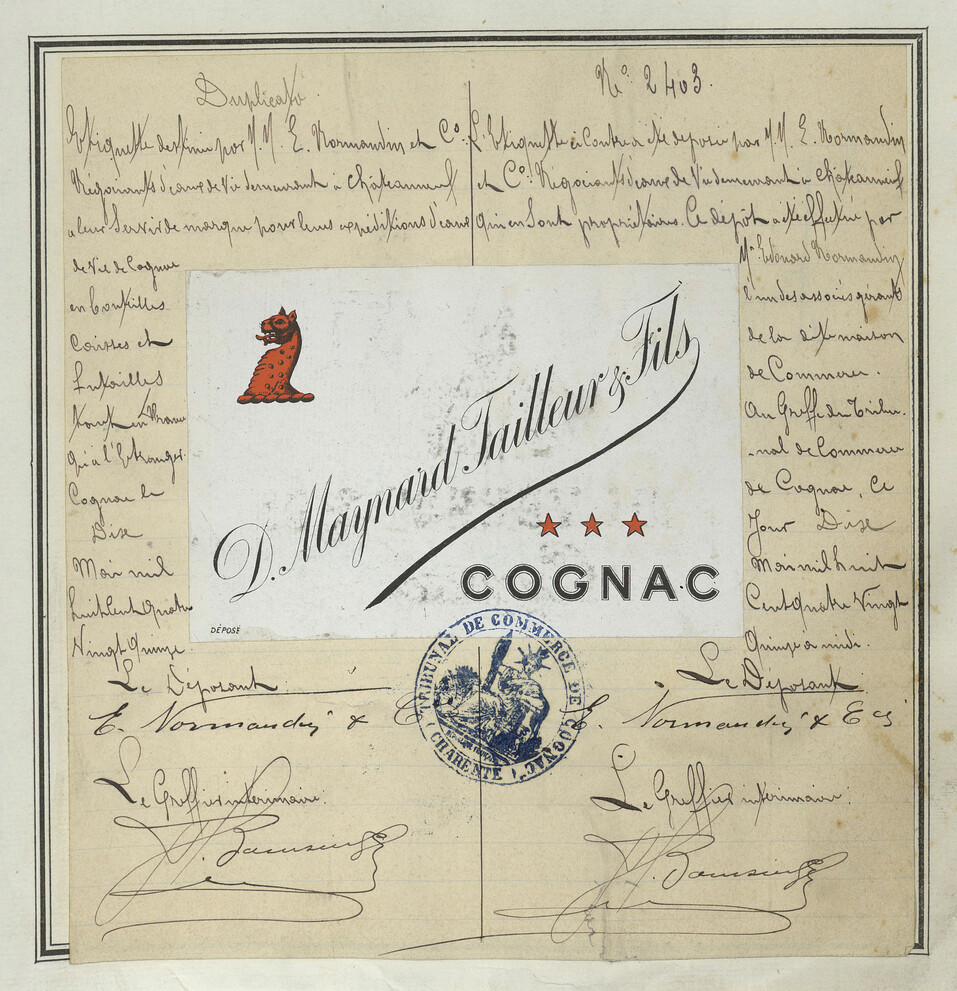 Duplicata.
Etiquette destinée par M.M. E. Normandin et Co.
Négociants d'eaux de Vie demeurant à Châteauneuf
à leur Servir de marque pour leurs expéditions d'eaux
de Vie de Cognac
en bouteilles
Caisses et
futailles
tant en France
qu'à l'Etranger.
Cognac le
Dix
Mai mil
huit Cent quatre
Vingt Quinze
Le Déposant
E. Normandin & Cie
Le Greffier intérimaire.
No. 2403.
L'Etiquette ci Contre a été déposée par M.M. E. Normandin
et Co. Négociants d'eaux de Vie demeurant à Châteauneuf
qui en Sont propriétaires. Ce dépôt a été effectué par
Mr. Edouard Normandin
l'un des associés gérants
de la dite maison
de Commerce.
Au Greffe du Tribu-
-nal de Commerce
de Cognac, Ce
Jour Dix
Mai mil huit
Cent quatre Vingt
Quinze à midi.
Le Déposant
E. Normandin & Cie
Le Greffier intérimaire.
D. Maynard Tailleur & Fils
COGNAC
DÉPOSÉ
TRIBUNAL DE COMMERCE DE COGNAC
(CHARENTE)